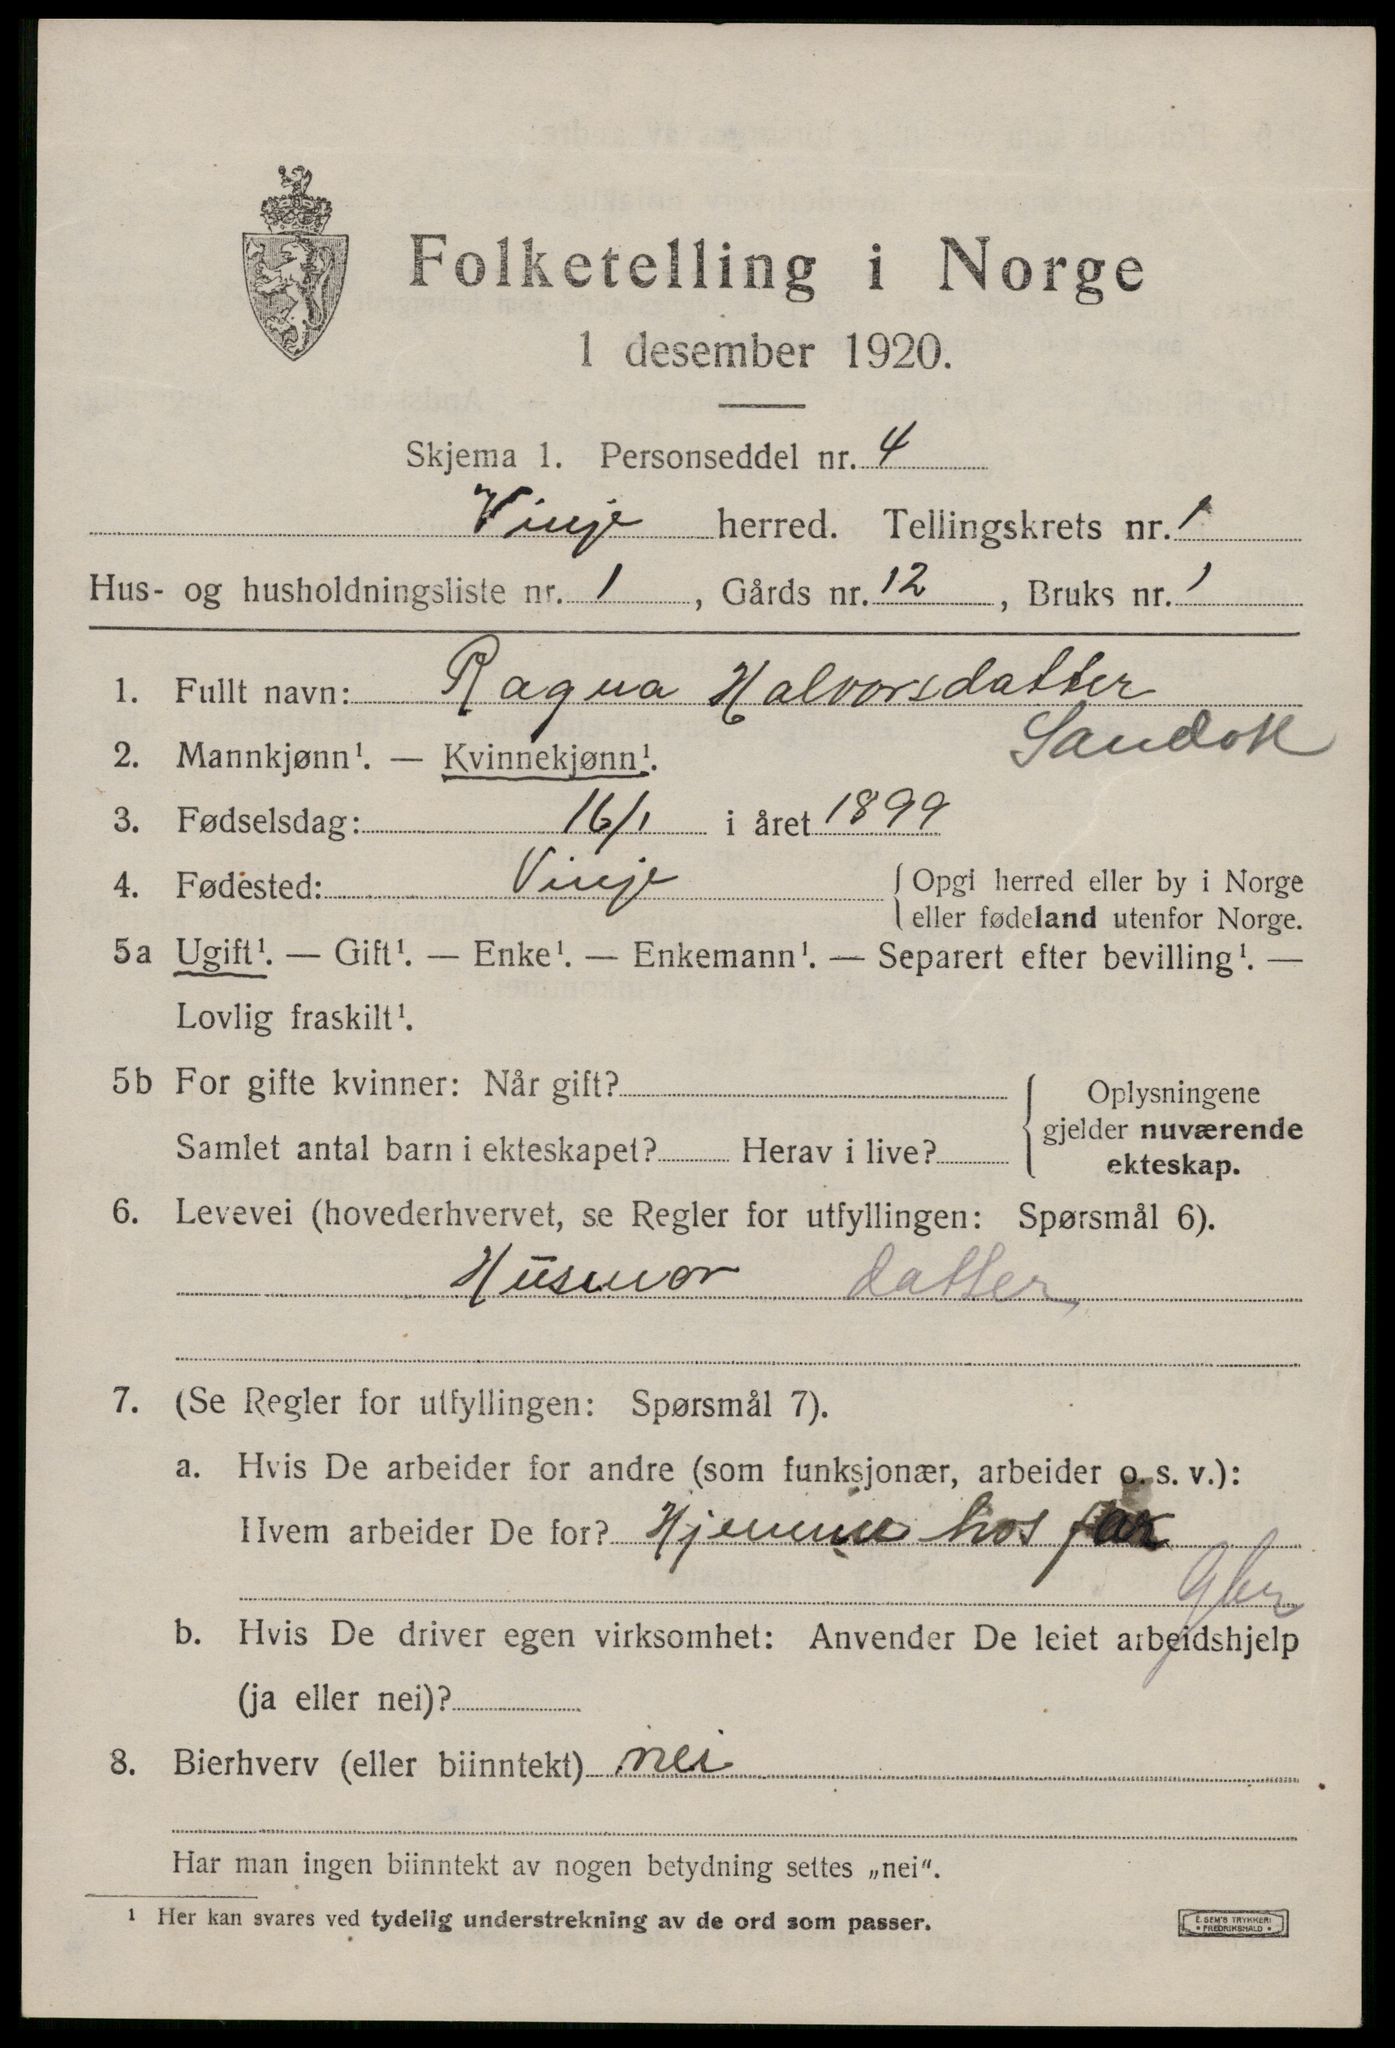 Folketelling i Norge
1 desember 1920.
Skjema 1. Personseddel nr. 4
Vinje herred. Tellingskrets nr. 1
Hus- og husholdningsliste nr. 1, Gårds nr. 12, Bruks nr. 1
1. Fullt navn: Ragna Halvorsdatter
Sandok
2. Mannkjønn¹. — Kvinnekjønn¹.
3. Fødselsdag: 16/1 i året 1899
4. Fødested: Vinje { Opgi herred eller by i Norge
eller fødeland utenfor Norge.
5a Ugift¹. — Gift¹. — Enke¹. — Enkemann¹. — Separert efter bevilling¹. —
Lovlig fraskilt¹.
5b For gifte kvinner: Når gift?
Samlet antal barn i ekteskapet? Herav i live?
{ Oplysningene
gjelder nuværende
ekteskap.
6. Levevei (hovederhvervet, se Regler for utfyllingen: Spørsmål 6).
Husmor datter
7. (Se Regler for utfyllingen: Spørsmål 7).
a. Hvis De arbeider for andre (som funksjonær, arbeider o. s. v.):
Hvem arbeider De for? Hjemme hos far
Gbr
b. Hvis De driver egen virksomhet: Anvender De leiet arbeidshjelp
(ja eller nei)?
8. Bierhverv (eller biinntekt) nei
Har man ingen biinntekt av nogen betydning settes „nei“.
¹ Her kan svares ved tydelig understrekning av de ord som passer.
E. SEM'S TRYKKERI
• FREDRIKSHALD •